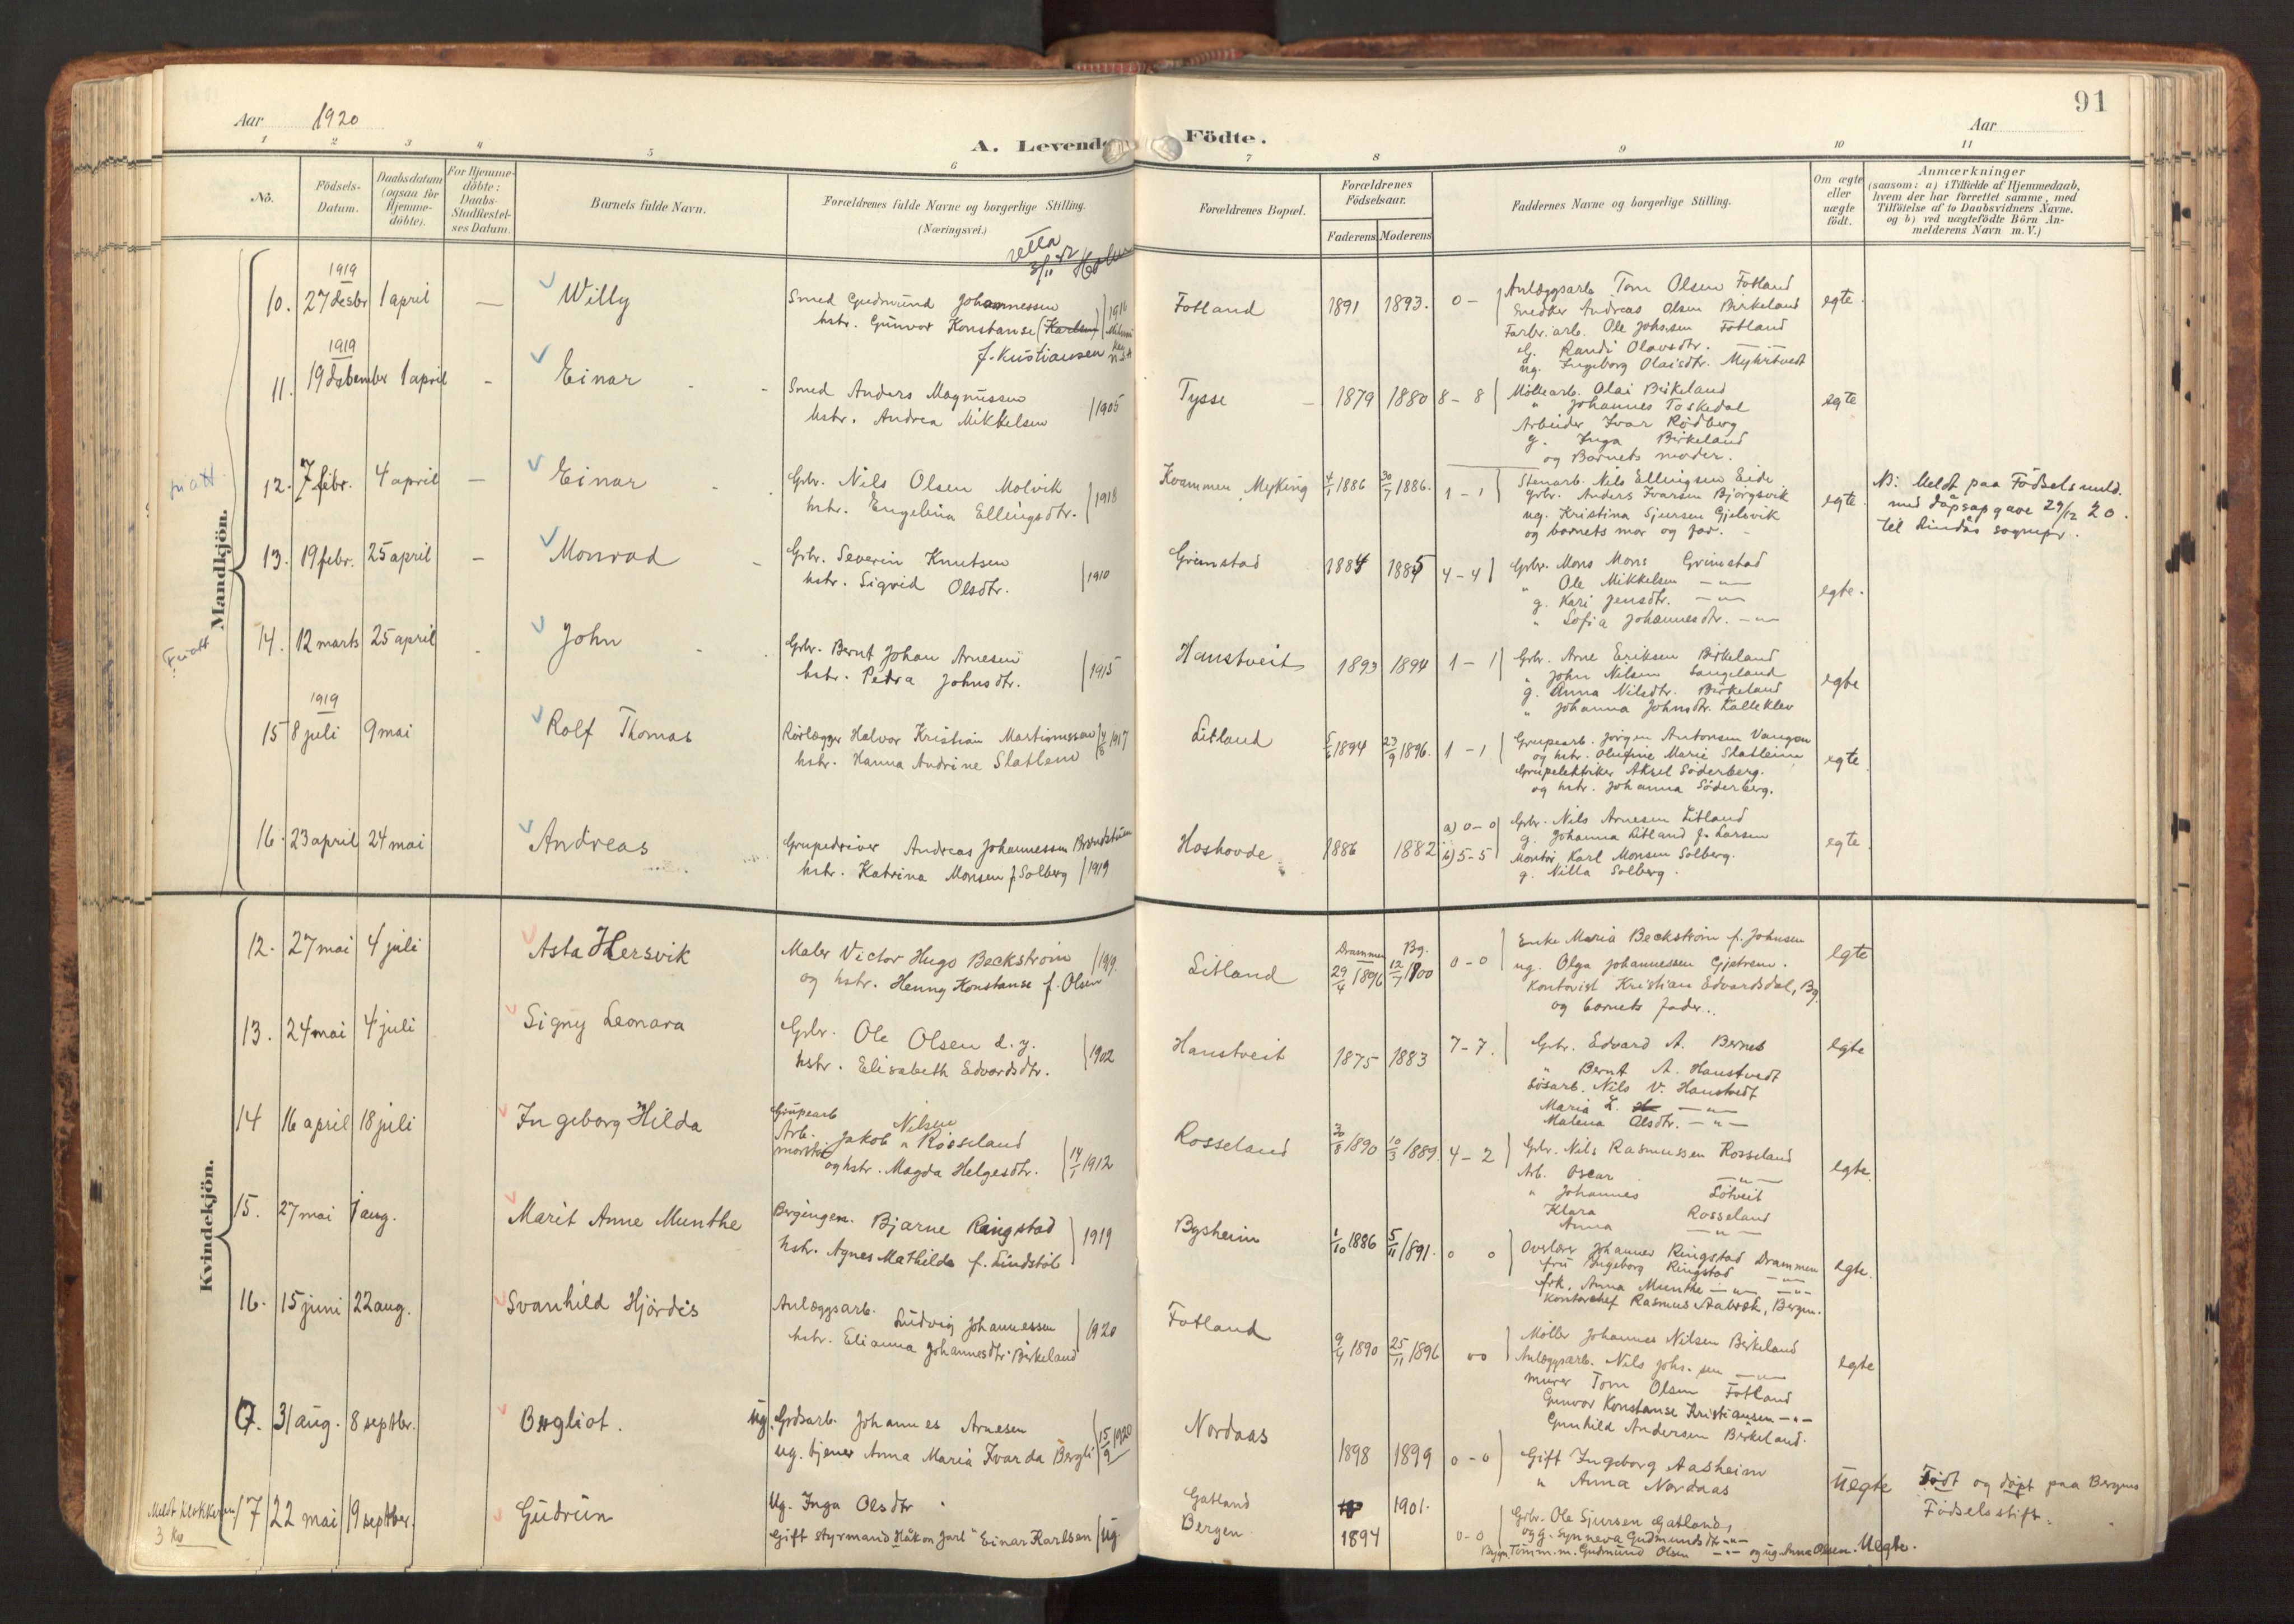 91
Aar 1920
Aar
A. Levende Födte.
1 2 3 4 5 6 7 8 9 10 11
No.
Födsels-Datum.
Daabsdatum (ogsaa for Hjemme-döbte).
For Hjemme-döbte: Daabs-Stadfæstel-ses Datum.
Barnets fulde Navn.
Forældrenes fulde Navne og borgerlige Stilling.
(Næringsvei.)
Forældrenes Bopæl.
Forældrenes Födselsaar.
Faderens Moderens
Faddernes Navne og borgerlige Stilling.
Om ægte eller uægte födt.
Anmærkninger
(saasom: a) i Tilfælde af Hjemmedaab, hvem der har forrettet samme, med Tilföielse af to Daabsvidners Navne, og b) ved uægtefödte Börn An-melderens Navn m. V.)
Mandkjön.
1919
10. 27 desbr 1 april — Willy
Smed Gudmund Johannessen
hstr. Gunvor Konstanse (Karlsen)
f. Kristiansen
Fotland 1891 1893. 0 –
Anlægsarb. Tom Olsen Fotland
Snedker Andreas Olsen Birkeland
Farbr. arb. Ole Johnsen Fotland
g. Randi Olavsdtr. — " —
ug. Ingeborg Olaisdtr. Myhrtvedt
egte.
1919
11. 19 desember 1 april - Einar
Smed Anders Magnussen
hstr. Andrea Mikkelsen 1905
Tysse 1879 1880 8 – 8
Möllearb. Olai Birkeland
" Johannes Toskedal
Arbeider Ivar Rødberg
g. Inga Birkeland
og Barnets moder.
egte
12. 7 febr. 4 april — Einar
Grbr. Nils Olsen Molvik
hstr. Engelina Ellingsdtr. 1918
Kvammen, Myking 4/1 1886 30/7 1886. 1 – 1
Stenarb. Nils Ellingsen Eide
Grbr. Anders Ivarsen Bjørgsvik
ug. Kristina Sjursen Gjelsvik
og barnets mor og far.
egte.
N: Meldt paa Födselsmeld.
med dåpsopgave 29/12 20.
til Lindås sognepr.
13. 19 febr. 25 april — Monrad
Grbr. Severin Knutsen
hstr. Sigrid Olsdtr. 1910
Grimstad 1884 1885 4 – 4
Grbr. Mons Mons Grimstad
" Ole Mikkelsen — " —
g. Kari Jensdtr. — " —
" Sofia Johannesdtr. — " —
egte.
14. 12 marts 25 april - John
Grbr. Bernt Johan Arnesen
hstr. Petra Johnsdtr. 1915
Hanstveit 1893 1894 1 – 1
Grbr. Arne Eriksen Birkeland
" John Nilsen Langeland
g. Anna Nilsdtr. Birkeland
" Johanna Johnsdtr. Kalleklev
egte
1919
15 8 juli 9 mai Rolf Thomas
Rörlægger Halvor Kristian Martinussen 1917
hstr. Hanna Andrine Slatlem
Litland 5/6 1894 23/9 1896. 1 – 1
Grupearb. Jørgen Antonsen Vangen
og hstr. Olufine Marie Slatleim
Grupelektriker Aksel Söderberg.
og hstr. Johanna Söderberg.
egte
16. 23 april 24 mai Andreas
Grupedriver Andreas Johannessen
hstr. Katrina Monsen f. Solberg 1919
Hoshovde 1886 1882 a) 0 – 0 b) 5 – 5
Grbr. Nils Arnesen Litland
g. Johanna Litland f. Larsen
Montör Karl Monsen Solberg.
g. Nilla Solberg.
egte
Kvindekjön.
12. 27 mai 4 juli Asta Hersvik
Maler Victor Hugo Beckström 1919.
og hstr. Henny Konstanse f. Olsen
Litland Drammen 29/4 1896 Bg. 12/7 1900 0 – 0
Enke Maria Beckström f. Johnsen
ug. Olga Johannessen Gjetrem.
Kontorist Kristian Edvardsdal, Bg.
og barnets fader.
egte
13. 24 mai 4 juli Signy Leonara
Grbr. Ole Olsen d. y.
hstr. Elisabeth Edvardsdtr. 1902
Hanstveit 1875 1883 7 – 7.
Grbr. Edvard A. Bernes
" Bernt A. Hanstvedt
Løsarb. Nils V. Hanstvedt
Maria L. — " —
Malena Olsdtr. — " —
egte
14 16 april 18 juli Ingeborg Hilda
Grupearb
Arb. Jakob Nilsen Rosseland
og hstr. Magda Helgesdtr. 14/1 1912
Rosseland 30/8 1890 10/3 1889. 4 – 2
Grbr. Nils Rasmussen Rosseland
Arb. Oscar — " —
" Johannes Lötveit
Klara Rosseland
Anna — " —
egte.
15. 27 mai 1 aug. Marit Anne Munthe
Bergingen. Bjarne Ringstad
hstr. Agnes Mathilde f. Lindstöl 1919
Bysheim 1/10 1886 5/11 1891. 0 0
Overlærer Johannes Ringstad Drammen
fru Ingeborg Ringstad — " —
frk. Anna Munthe — " — — " —
Kontorchef Rasmus Aabrek, Bergen.
egte.
16. 15 juni 22 aug. Svanhild Hjördis
Anlægsarb. Ludvig Johannessen
hstr. Elianna Johannesdtr Birkeland 1920
Fotland 9/4 1890 25/11 1896 00
Möller Johannes Nilsen Birkeland
Anlægsarb. Nils Johs. sen — " —
Murer Tom Olsen Fotland
Gunvor Konstanse Kristiansen — " —
Gunhild Andersen Birkeland.
egte
0. 31 aug. 8 septbr. Bergliot.
ug. Grdsarb. Johannes Arnesen
ug. tjener Anna Maria Ivarda Bergli 15/9 1920
Nordaas 1898 1899 0 – 0
Gift Ingeborg Aasheim
" Anna Nordaas
Uegte
Födt og döpt paa Bergens
Födselsstift.
Meldt klokkeren
3 Ks
17 22 mai 19 septber. Gudrun
Ug. Inga Olsdtr
Gift styrmand "Håkon Jarl" Einar Karlsen ug.
Gatland 1901.
Bergen 1894 0 – 0
Grbr. Ole Sjursen Gatland,
og g. Synneva Gudmundsdtr — " —
Bygn. Tömm. m. Gudmund Olsen — " — og ug. Anna Olsen.
Uegte.